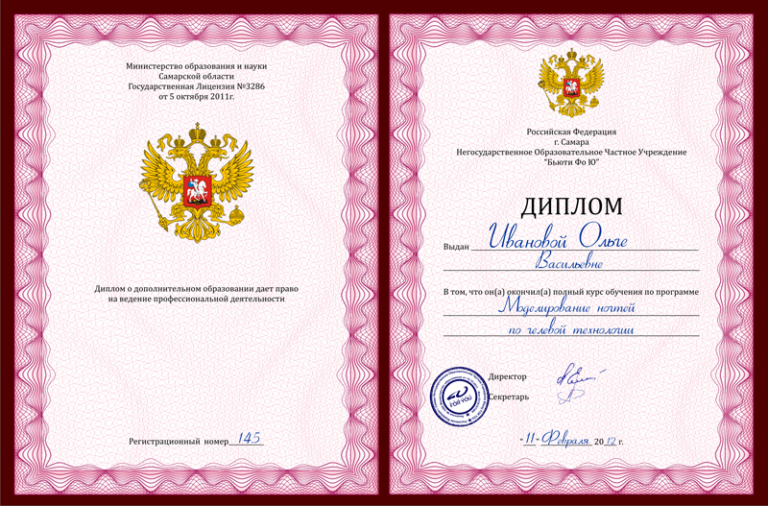 Министерство образования и науки
Самарской области
Государственная Лицензия №3286
от 5 октября 2011г.
Диплом о дополнительном образовании дает право
на ведение профессиональной деятельности
Регистрационный номер 145
Российская Федерация
г. Самара
Негосударственное Образовательное Частное Учреждение
"Бьюти Фо Ю"
ДИПЛОМ
Выдан Ивановой Ольге
Васильевне
В том, что он(а) окончил(а) полный курс обучения по программе
Моделирование ногтей
по гелевой технологии
Директор
Секретарь
FOR YOU
"11" Февраля 2012 г.